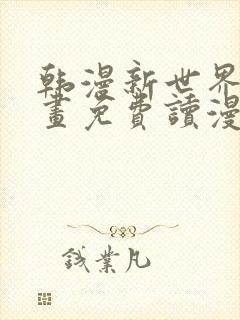 韩漫新世界
畫免費讀漫
錢業凡